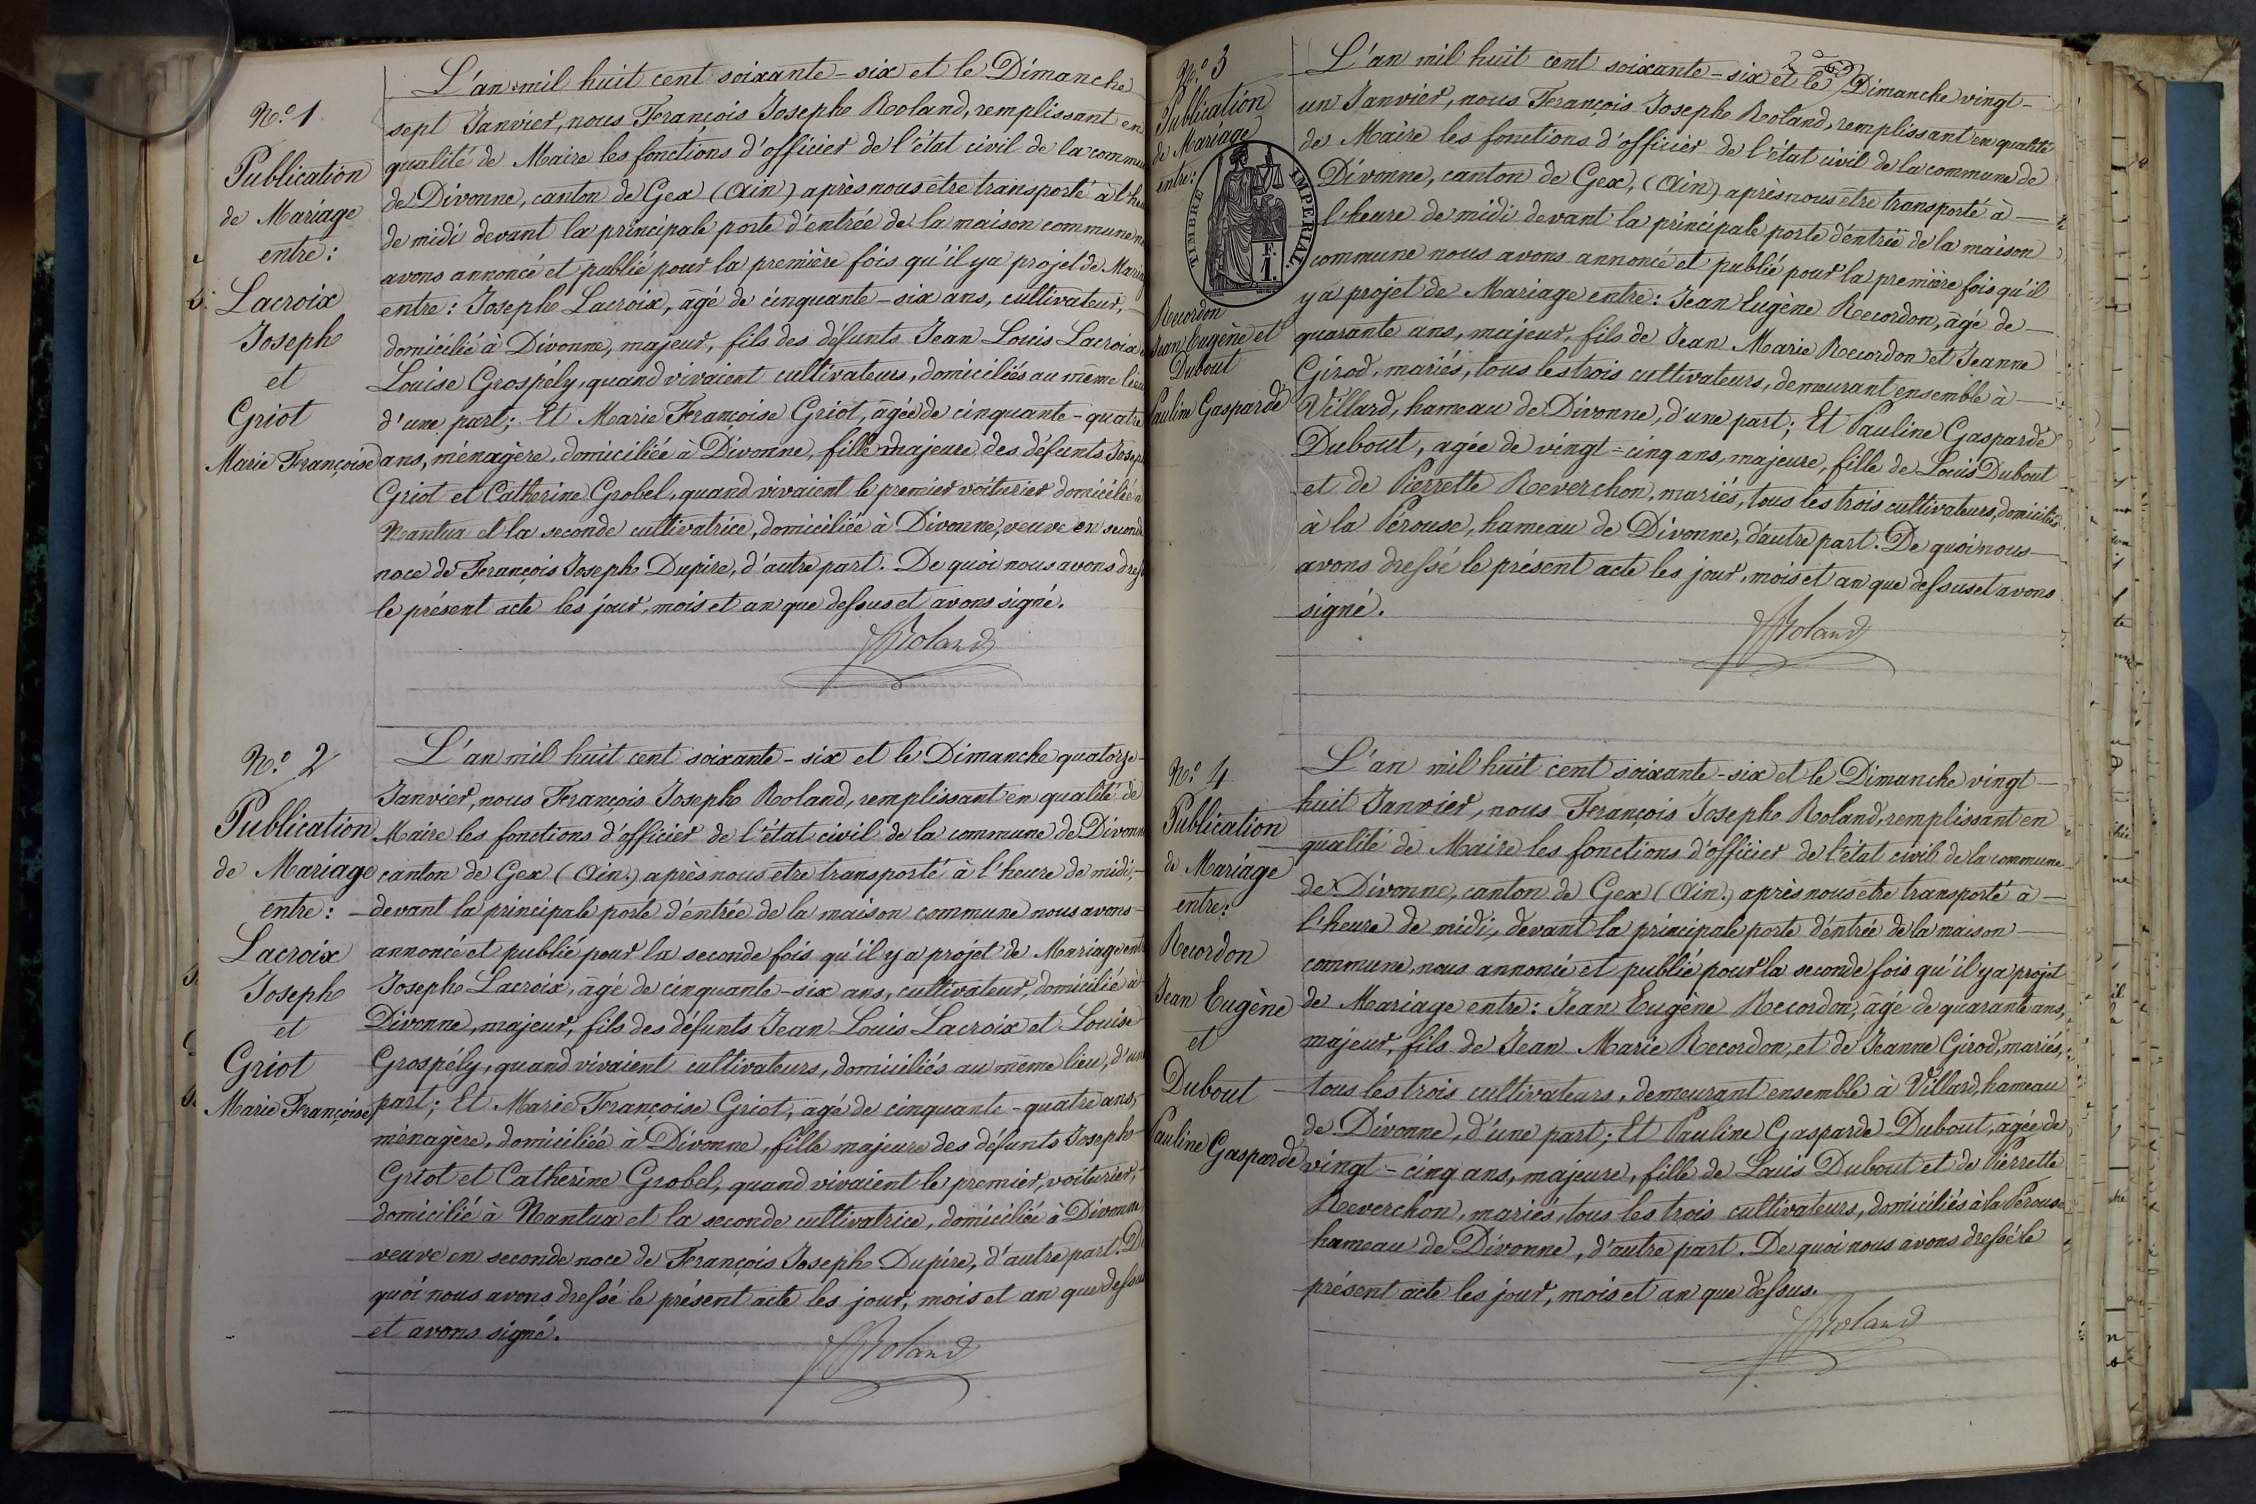 N.° 1
Publication
de Mariage
entre:
Lacroix
Joseph
et
Griot
Marie Françoise
L'an mil huit cent soixante-six et le Dimanche
sept Janvier, nous François Joseph Roland, remplissant en
qualité de Maire les fonctions d'officier de l'état civil de la
de Divonne, canton de Gex (Ain) après nous être transporté à
de midi devant la principale porte d'entrée de la maison commune
avons annoncé et publié pour la première fois qu'il y a projet de
entre: Joseph Lacroix, âgé de cinquante-six ans, cultivateur,
domicilié à Divonne, majeur, fils des défunts Jean Louis Lacroix
Louise Grospély, quand vivaient cultivateurs, domiciliés au même lieu
d'une part; Et Marie Françoise Griot, âgée de cinquante-quatre
ans, ménagère, domiciliée à Divonne, fille majeure des défunts
Griot et Catherine Grobel, quand vivaient le premier voiturier domicilié à
Nantua et la seconde cultivatrice, domiciliée à Divonne, veuve en
noce de François Joseph Dupire, d'autre part. De quoi nous avons
le présent acte les jour, mois et an que dessus et avons signé.
Roland
N.° 2
Publication
de Mariage
entre:
Lacroix
Joseph
et
Griot
Marie Françoise
L'an mil huit cent soixante-six et le Dimanche quatorze
Janvier, nous François Joseph Roland, remplissant en qualité de
Maire les fonctions d'officier de l'état civil de la commune de
canton de Gex (Ain.) après nous être transporté à l'heure de midi,
devant la principale porte d'entrée de la maison commune nous avons
annoncé et publié pour la seconde fois qu'il y a projet de Mariage
Joseph Lacroix, âgé de cinquante-six ans, cultivateur, domicilié à
Divonne, majeur, fils des défunts Jean Louis Lacroix et Louise
Grospély, quand vivaient cultivateurs, domiciliés au même lieu,
part; Et Marie Françoise Griot, âgé de cinquante-quatre ans,
ménagère, domiciliée à Divonne, fille majeure des défunts Joseph
Griot et Catherine Grobel, quand vivaient le premier, voiturier,
domicilié à Nantua et la seconde cultivatrice, domiciliée à Divonne
veuve en seconde noce de François Joseph Dupire, d'autre part. De
quoi nous avons dressé le présent acte les jour, mois et an que dessus
et avons signé.
Roland
N.° 3
Publication
de Mariage
entre:
TIMBRE IMPERIAL.
F.
1.
Recordon
Jean Eugène et
Dubout
Pauline Gasparde
L'an mil huit cent soixante-six et le Dimanche vingt-
un Janvier, nous François Joseph Roland, remplissant en qualité
de Maire les fonctions d'officier de l'état civil de la commune de
Divonne, canton de Gex, (Ain) après nous être transporté à
l'heure de midi devant la principale porte d'entrée de la maison
commune nous avons annoncé et publié pour la première fois qu'il
y a projet de Mariage entre: Jean Eugène Recordon, âgé de
quarante ans, majeur, fils de Jean Marie Recordon et Jeanne
Girod, mariés, tous les trois cultivateurs, demeurant ensemble à
Villard, hameau de Divonne, d'une part; Et Pauline Gasparde
Dubout, agée de vingt-cinq ans, majeure, fille de Louis Dubout
et de Pierrette Reverchon, mariés, tous les trois cultivateurs, domiciliés
à la Pérouse, hameau de Divonne, d'autre part. De quoi nous
avons dressé le présent acte les jour, mois et an que dessus et avons
signé.
Roland
N.° 4
Publication
de Mariage
entre:
Recordon
Jean Eugène
et
Dubout
Pauline Gasparde
L'an mil huit cent soixante-six et le Dimanche vingt
huit Janvier, nous François Joseph Roland, remplissant en
qualité de Maire les fonctions d'officier de l'état civil de la commune
de Divonne, canton de Gex (Ain.) après nous être transporté à
l'heure de midi, devant la principale porte d'entrée de la maison
commune, nous annoncé et publié pour la seconde fois qu'il y a projet
de Mariage entre: Jean Eugène Recordon, âgé de quarante ans,
majeur, fils de Jean Marie Recordon, et de Jeanne Girod, mariés,
tous les trois cultivateurs, demeurant ensemble à Villard, hameau
de Divonne, d'une part; Et Pauline Gasparde Dubout, âgée de
vingt-cinq ans, majeure, fille de Louis Dubout et de Pierrette
Reverchon, mariés, tous les trois cultivateurs, domiciliés à la Pérouse
hameau de Divonne, d'autre part. De quoi nous avons dressé le
présent acte les jour, mois et an que dessus.
Roland